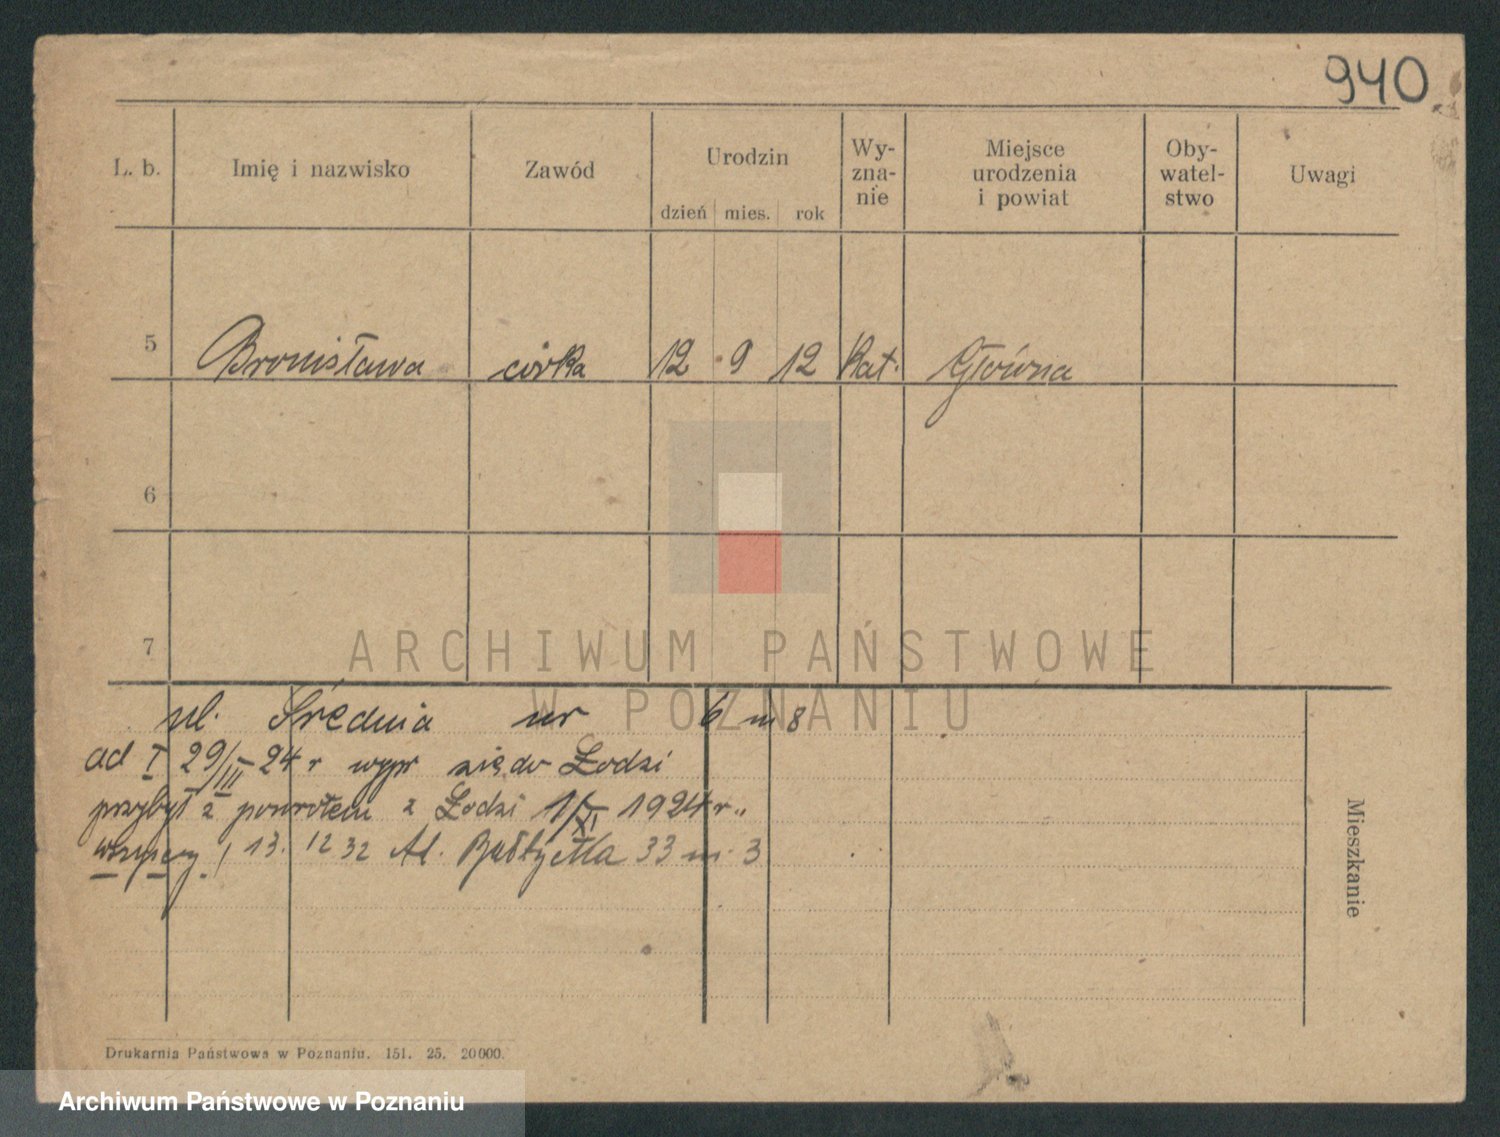 940
L. b. Imię i nazwisko Zawód Urodzin Wy-zna-nie Miejsce urodzenia i powiat Oby-watel-stwo Uwagi
dzień mies. rok
5 Bronisława córka 12 9 12 Kat. Główna
6
7
ARCHIWUM PAŃSTWOWE
W POZNANIU
ul. Średnia nr 6 m 8
ad I 29/III-24 r wypr się do Łodzi
przybył z powrotem z Łodzi 1/XI 1924 r.
wszyscy 13. 12 32 Al. 33 m. 3
Mieszkanie
Drukarnia Państwowa w Poznaniu. 151. 25. 20000.
Archiwum Państwowe w Poznaniu